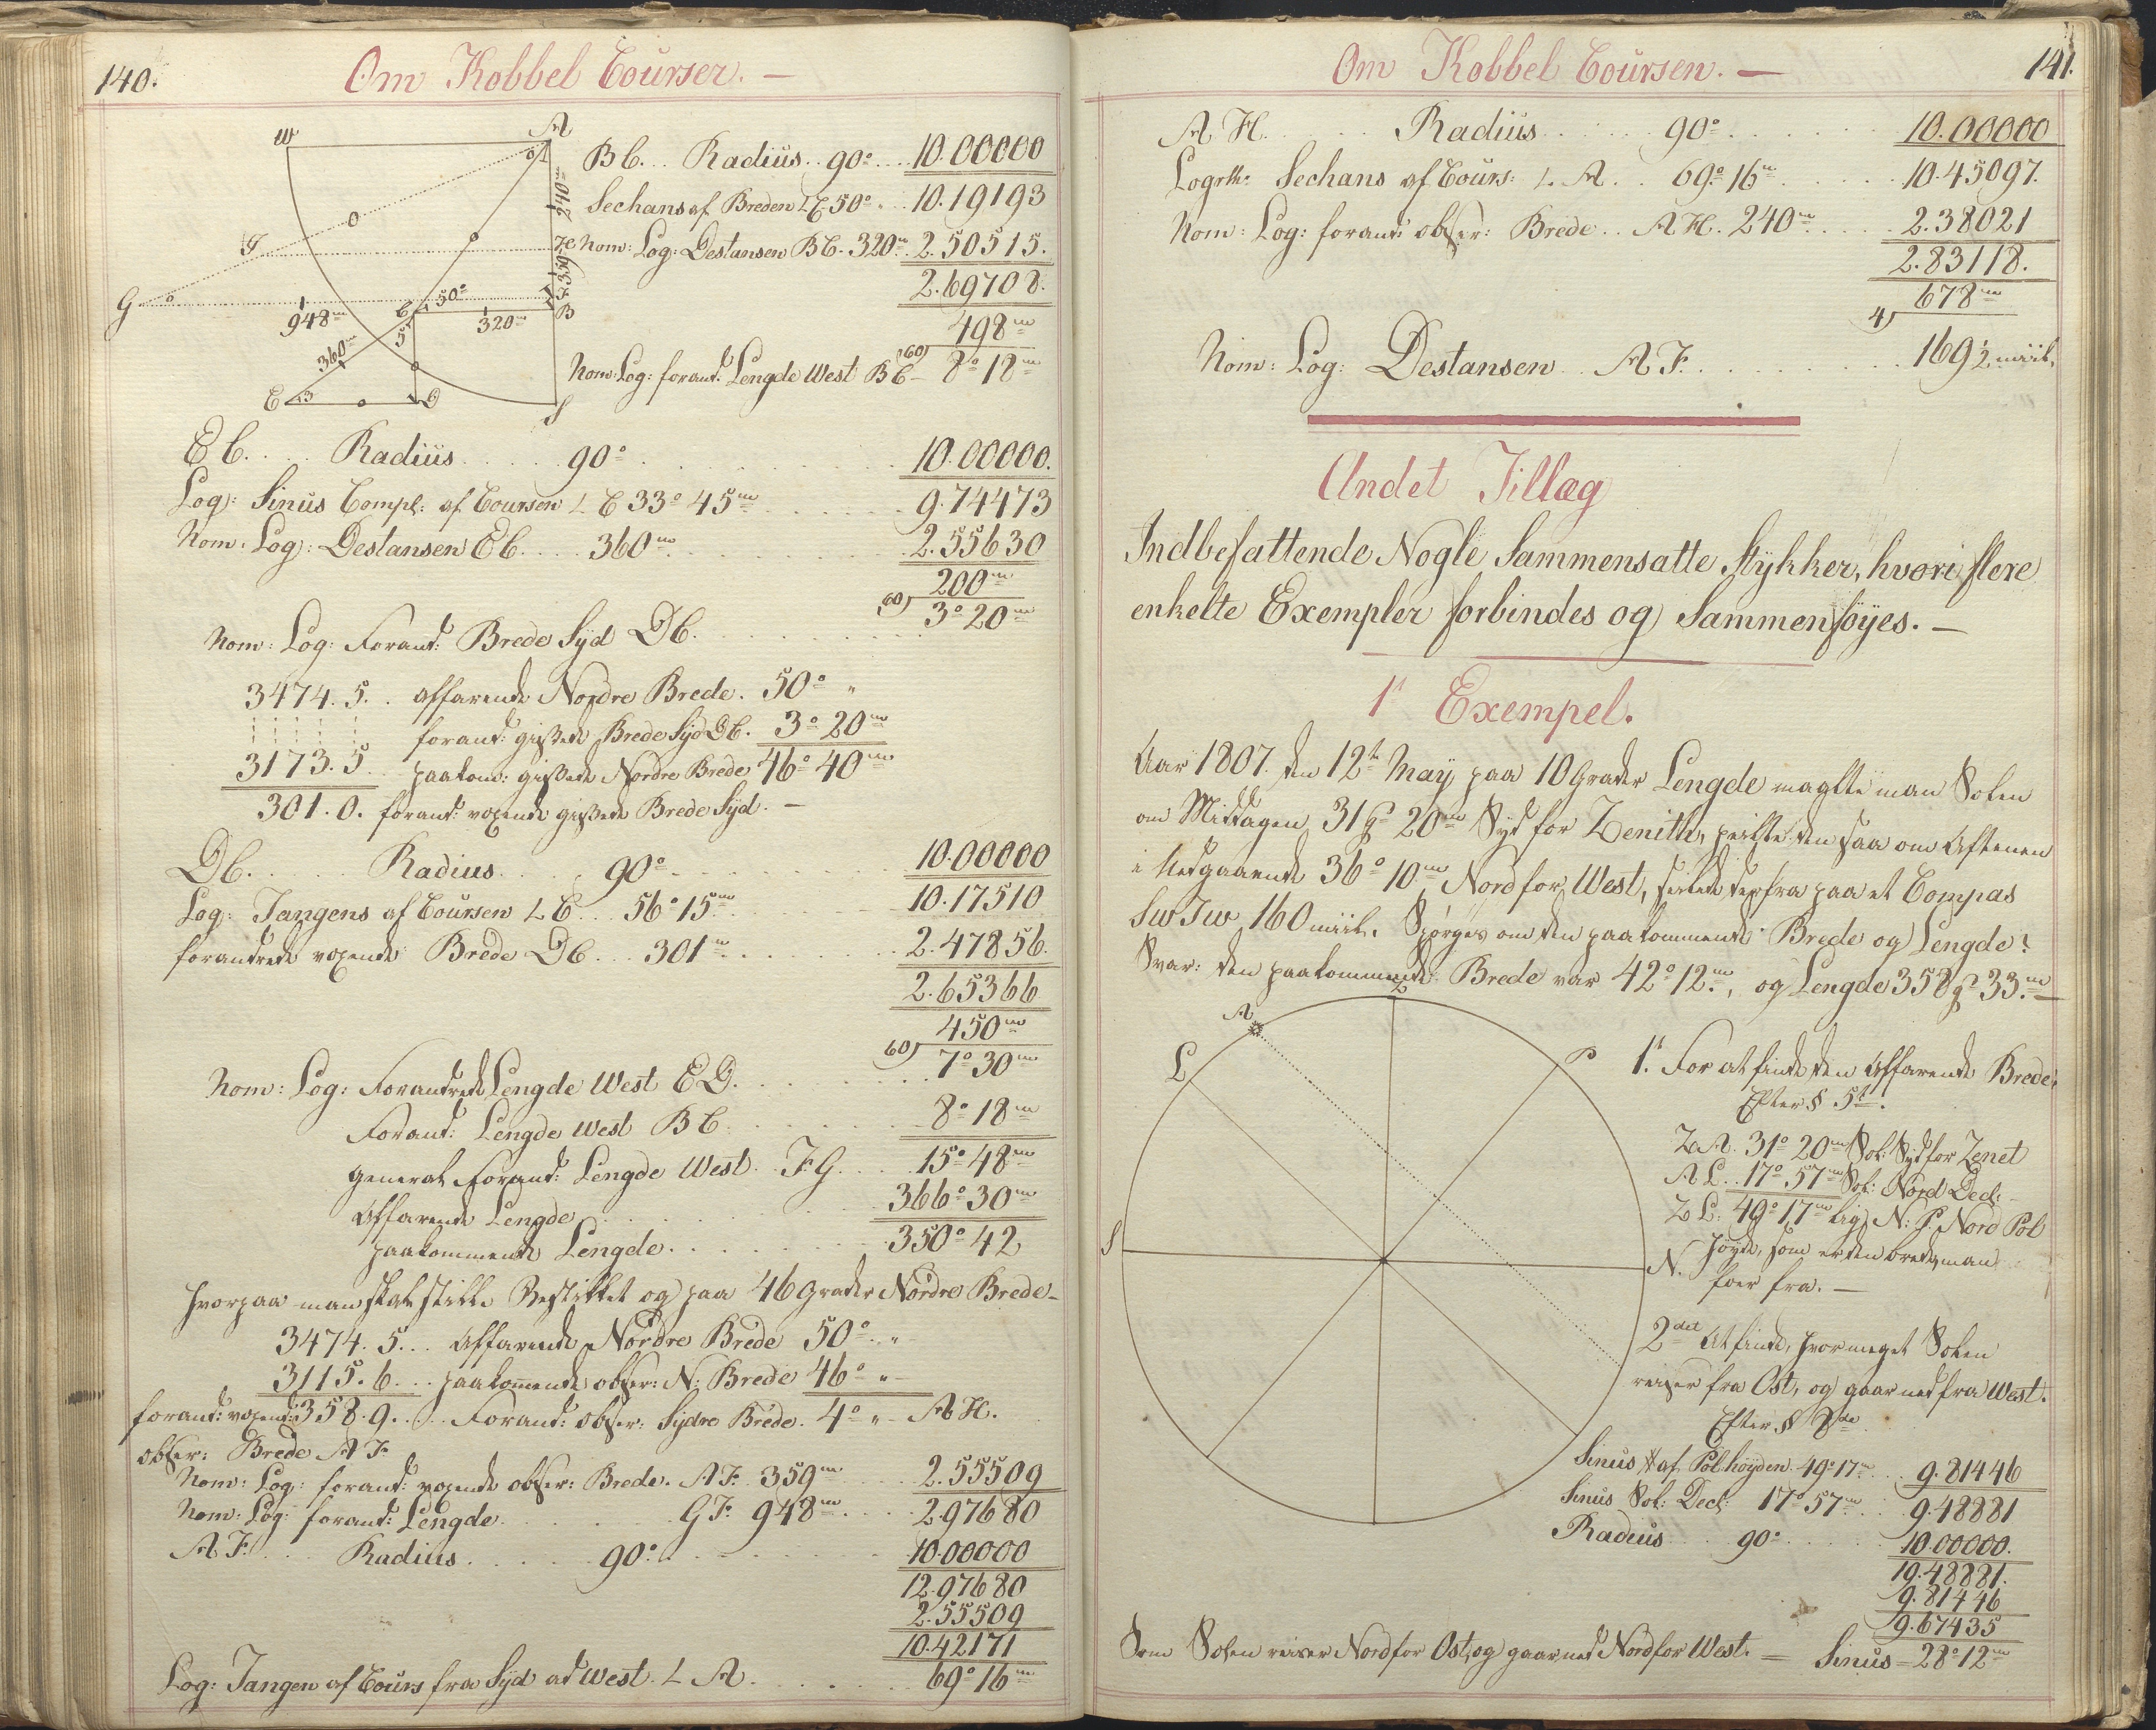 140.
Om Kobbel Courser. —
W
A
240m
359
O
I
H
G
948m
C
50°
320m
B
F
360m
E
D
S
BC... Radius.. 90°.... 10.00000
Sechans af Breden L C 50°.. 10.19193
Nom: Log: Destansen BC. 320m. 2.50515.
2.69708.
498m
Nom: Log: forand: Lengde West BC — 60) 8° 18m
EC.... Radius..... 90°...... 10.00000.
Log: Sinus Compl: af Coursen L C 33° 45m...... 9.74473
Nom: Log: Destansen EC.... 360m...... 2.55630
200m
60) 3° 20m
Nom: Log: Forand: Brede Syd DC......
3474.5.. affarende Nordre Brede. 50° "
forand: gissede Brede Syd DC. 3° 20m
3173.5. paakom: gissede Nordre Brede 46° 40m
301.0. forand: voxende gissede Brede Syd. —
DC..... Radius..... 90°....... 10.00000
Log: Tangens af Coursen L C... 56° 15m...... 10.17510
forandrede voxende Brede DC... 301m....... 2.47856.
2.65366
450m
60) 7° 30m
Nom: Log: Forandrede Lengde West ED.......
Forand: Lengde West BC....... 8° 18m
General Forand: Lengde West. FG.... 15° 48m
Affarende Lengde....... 366° 30m
paakommende Lengde....... 350° 42
Hvorpaa man skal stille Bestikket og paa 46 Grader Nordre Brede —
3474.5... Affarende Nordre Brede 50°.. "
3115.6... paakommende obser: N: Brede 46° " —
forand: voxende 358.9.... Forand: obser: Sydre Brede. 4° " — AH.
obser: Brede AF
Nom: Log: forand: voxende obser: Brede. AF. 359m.... 2.55509
Nom: Log: forand: Lengde...... GF. 948m..... 2.97680
AF.... Radius...... 90°........ 10.00000
12.97680
2.55509
10.42171
Log: Tangen af Cours fra Syd ad West. L A....... 69° 16m
Om Kobbel Coursen. —
141.
AH..... Radius..... 90°...... 10.00000
Logrth: Sechans af Cours: L. A.. 69° 16m...... 10.45097.
Nom: Log: forand: obser: Brede.. AH. 240m..... 2.38021
2.83118.
4) 678m
Nom: Log: Destansen.. AF......... 169 1/2 miil.
Andet Tillæg
Indbefattende Nogle Sammensatte Stykker, hvori flere
enkelte Exempler forbindes og Sammenføyes. —
1t Exempel.
Aar 1807. den 12te May paa 10 Grader Lengde maalte man Solen
om Middagen 31 G° 20m Syd for Zenith, peilte den saa om Aftenen
i Nedgaaende 36° 10m Nord for West, seilede derfra paa et Compas
SWTW 160 miil. Spørges om den paakommende Brede og Lengde?
Svar: den paakommende Brede var 42° 12m, og Lengde 358 G° 33m —
Z
A
L
P
S
N.
1t. For at finde den Affarende Brede.
Efter § 5te.
ZA. 31° 20m Sol: Syd for Zenet
AL.. 17° 57m Sol: Nord Decl. —
ZL: 49° 17m lig N: P. Nord Pol
Høyde, som er den brede, man
foer fra. —
2det At finde, hvor meget Solen
reiser fra Ost, og gaar ned fra West.
Efter § 8de
Sinus af Pol høyden. 49° 17m... 9.81446
Sinus Sol: Decl: 17° 57m... 9.48881
Radius.... 90°...... 10.00000.
19.48881.
9.81446
9.67435
Som Solen reiser Nord for Ost, og gaar ned Nord for West. — Sinus — 28° 12m